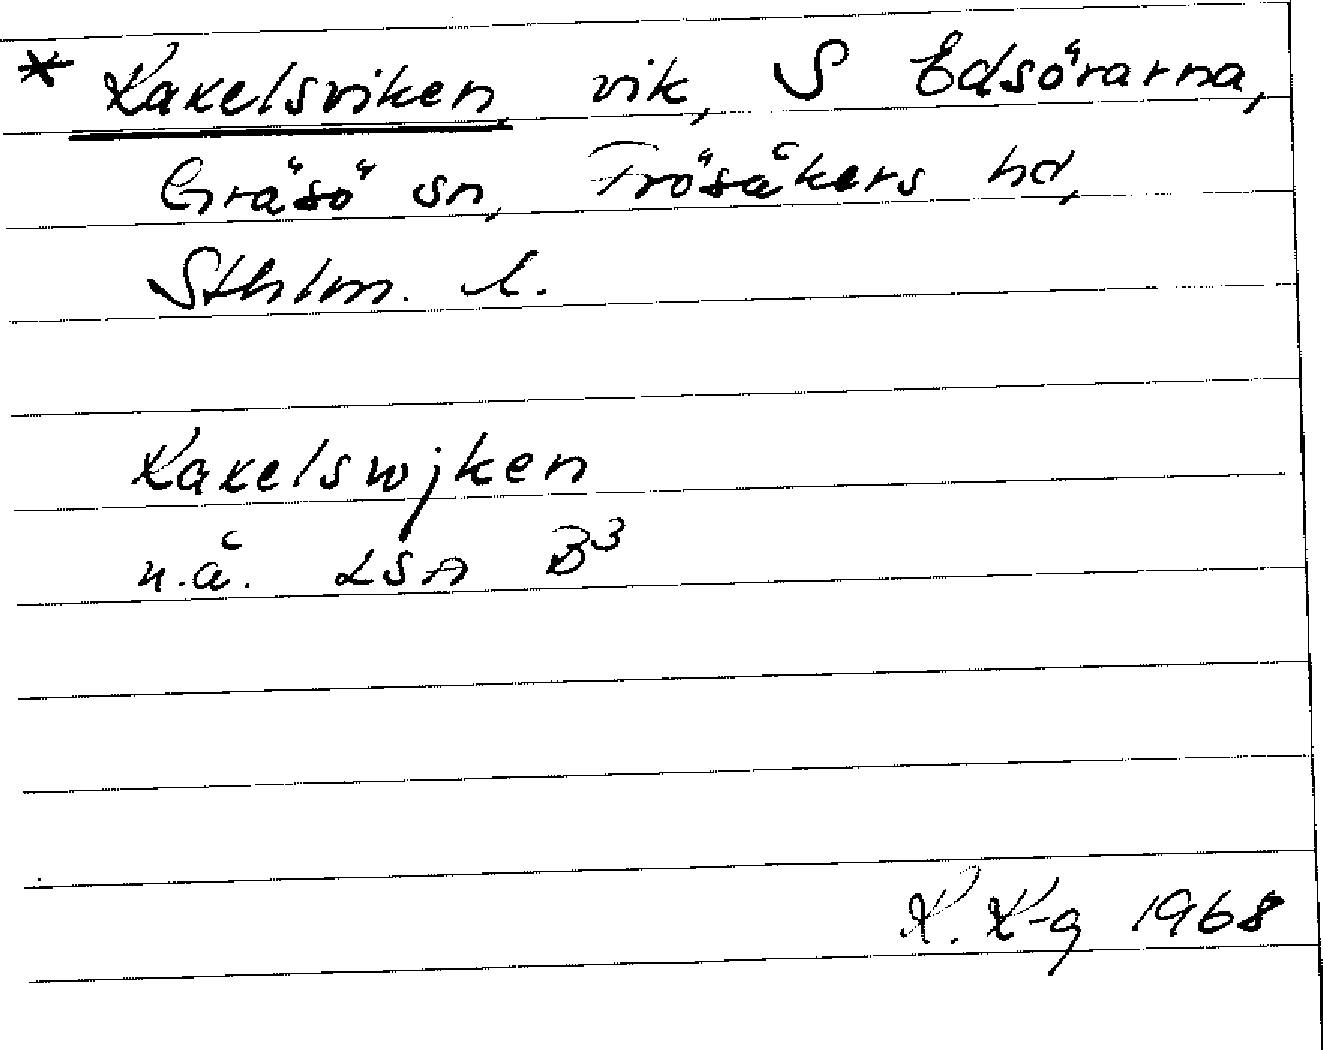 * Kakelsviken vik, S Edsörarna,
Gräsö sn, Frösåkers hd,
Sthlm. l.
Kakelswjken
n.å. LSA B³
K. K-g 1968